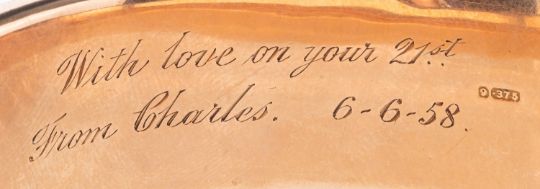 With love on your 21st.
9 .375
From Charles. 6-6-58.